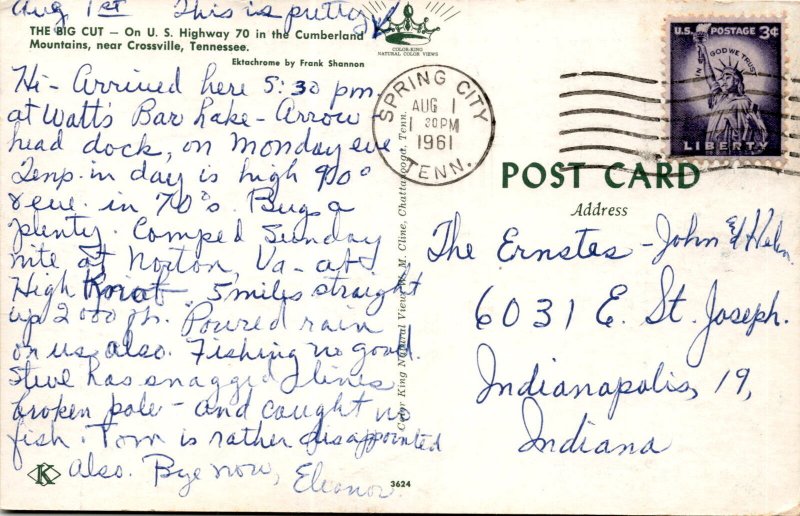 Aug 1st This is pretty
THE BIG CUT — On U. S. Highway 70 in the Cumberland
Mountains, near Crossville, Tennessee.
Ektachrome by Frank Shannon
COLOR-KING
NATURAL COLOR VIEWS
Hi - Arrived here 5:30 pm.
at Watts Bar Lake - Arrow-
head dock, on Monday eve
Temp. in day is high 90°
& eve. in 70's. Bugs a
plenty. Camped Sunday
nite at Norton, Va - at
High Point. 5 miles straight
up 2000 ft. Poured rain
on us also. Fishing no good.
Steve has snagged 2 lines
broken pole - and caught no
fish. Tom is rather disappointed
also. Bye now, Eleanor.
K
3624
Color King Natural Views W. M. Cline, Chattanooga, Tenn.
SPRING CITY
AUG 1
1 30PM
1961
TENN.
U.S. POSTAGE 3¢
IN GOD WE TRUST
LIBERTY
POST CARD
Address
The Ernstes - John & Helen
6031 E. St. Joseph.
Indianapolis, 19,
Indiana